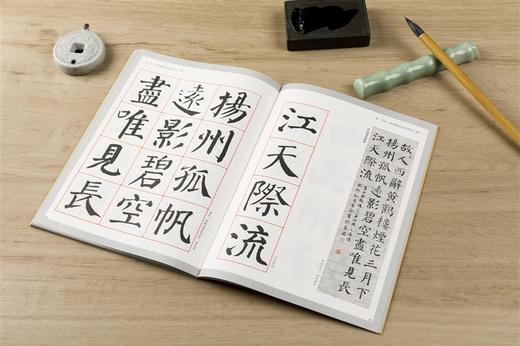 揚州孤帆
遠影碧空
盡唯見長
江天際流
故人西辭黃鶴樓煙花三月下
揚州孤帆遠影碧空盡唯見長
江天際流